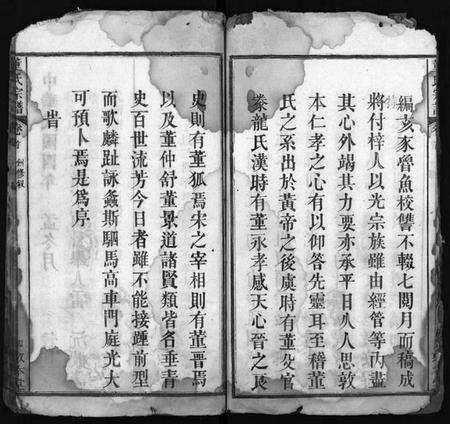 編亥豕魯魚校讐不輟七閱月而稿成
將付梓人以光宗族雖由經管等內盡
其心外竭其力要亦承平日人人思敦
本仁孝之心有以仰答先靈耳至稽董
氏之系出於黃帝之後虞時有董父官
豢龍氏漢時有董永孝感天心晉之良
史則有董狐焉宋之宰相則有董晉焉
以及董仲舒董景道諸賢類皆名垂青
史百世流芳今日者雖不能接踵前型
而歌麟趾詠螽斯駟馬高車門庭光大
可預卜焉是爲序
旹
氏宗譜
卷首